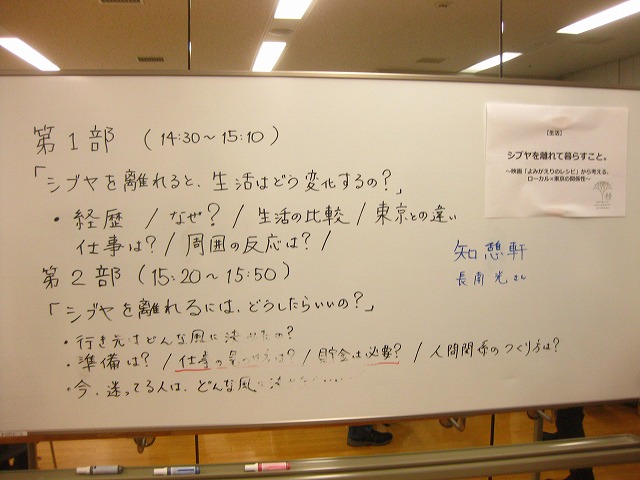 第1部 (14:30～15:10)
「シブヤを離れると、生活はどう変化するの?」
・経歴 / なぜ? / 生活の比較 / 東京との違い
仕事は? / 周囲の反応は? /
第2部 (15:20～15:50)
「シブヤを離れるには、どうしたらいいの?」
・行き先はどんな風に決めたの?
・準備は? / 仕事の見つけ方は? / 貯金は必要? / 人間関係のつくり方は?
・今、迷ってる人は、どんな風に
【生活】
シブヤを離れて暮らすこと。
～映画「よみがえりのレシピ」から考える、
ローカル×東京の関係性～
知憩軒
長南光さん